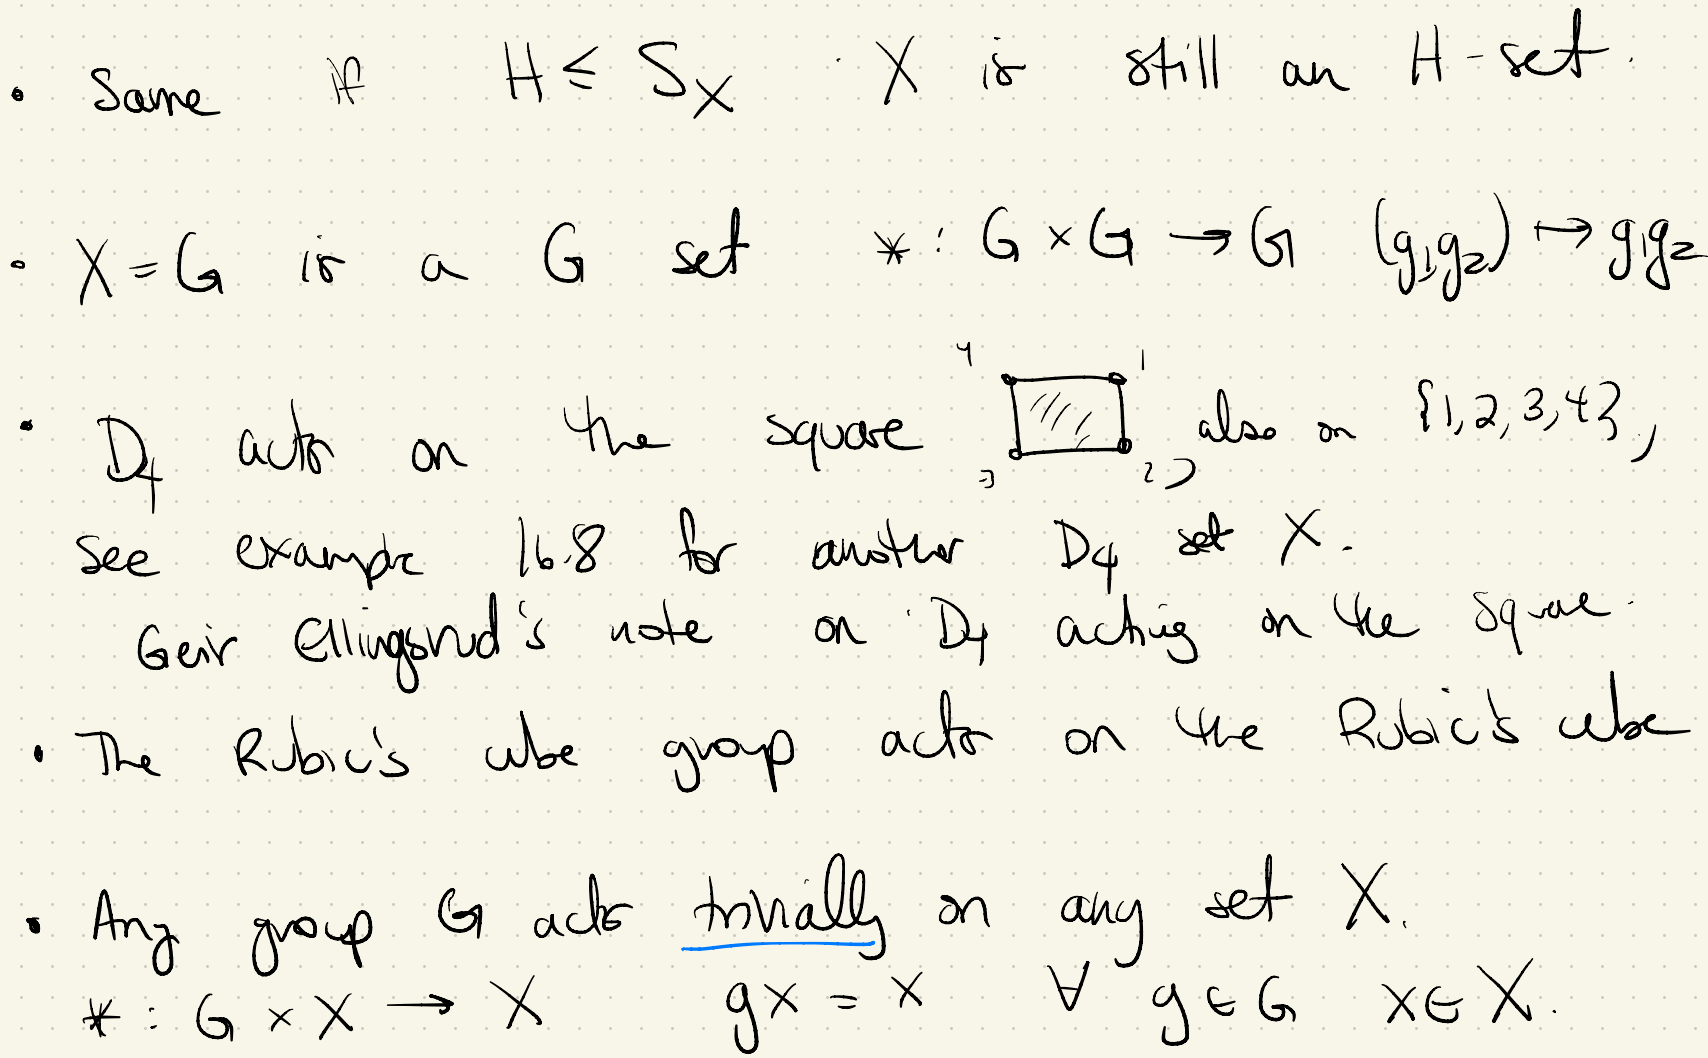 • Same if H ≤ S_X X is still an H-set.
• X = G is a G set * : G × G → G (g₁,g₂) ↦ g₁g₂
4 1
• D₄ acts on the square also on {1,2,3,4},
3 2,
see example 16.8 for another D₄ set X.
Geir Ellingsrud's note on D₄ acting on the square.
• The Rubic's cube group acts on the Rubic's cube
• Any group G acts trivially on any set X.
* : G × X → X gx = x ∀ g ∈ G x ∈ X.